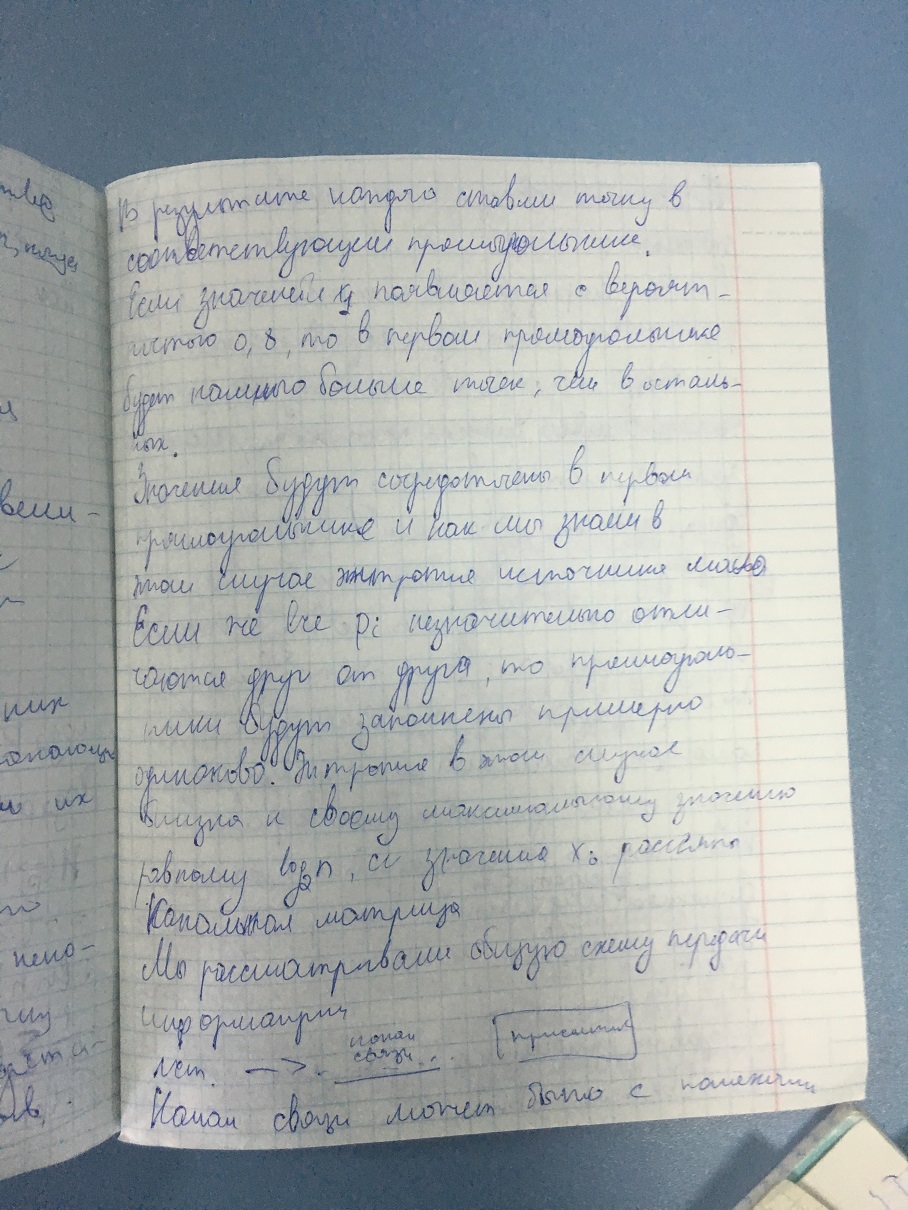 В результате каждого ставим точку в
соответствующем прямоугольнике.
Если значение x₁ появляется с вероят-
ностью 0,8, то в первом прямоугольнике
будет намного больше точек, чем в осталь-
ных.
Значения будут сосредоточены в первом
прямоугольнике и как мы знаем в
этом случае энтропия источника мала
Если же все pᵢ незначительно отли-
чаются друг от друга, то прямоуголь-
ники будут заполнены примерно
одинаково. Энтропия в этом случае
близка к своему максимальному значению
равному log₂n, а значения xᵢ рассеяны
Канальная матрица
Мы рассматривали общую схему передачи
информации
Ист. —> канал связи приемник
Канал связи может быть с помехами
вели-
них
и их
нено-